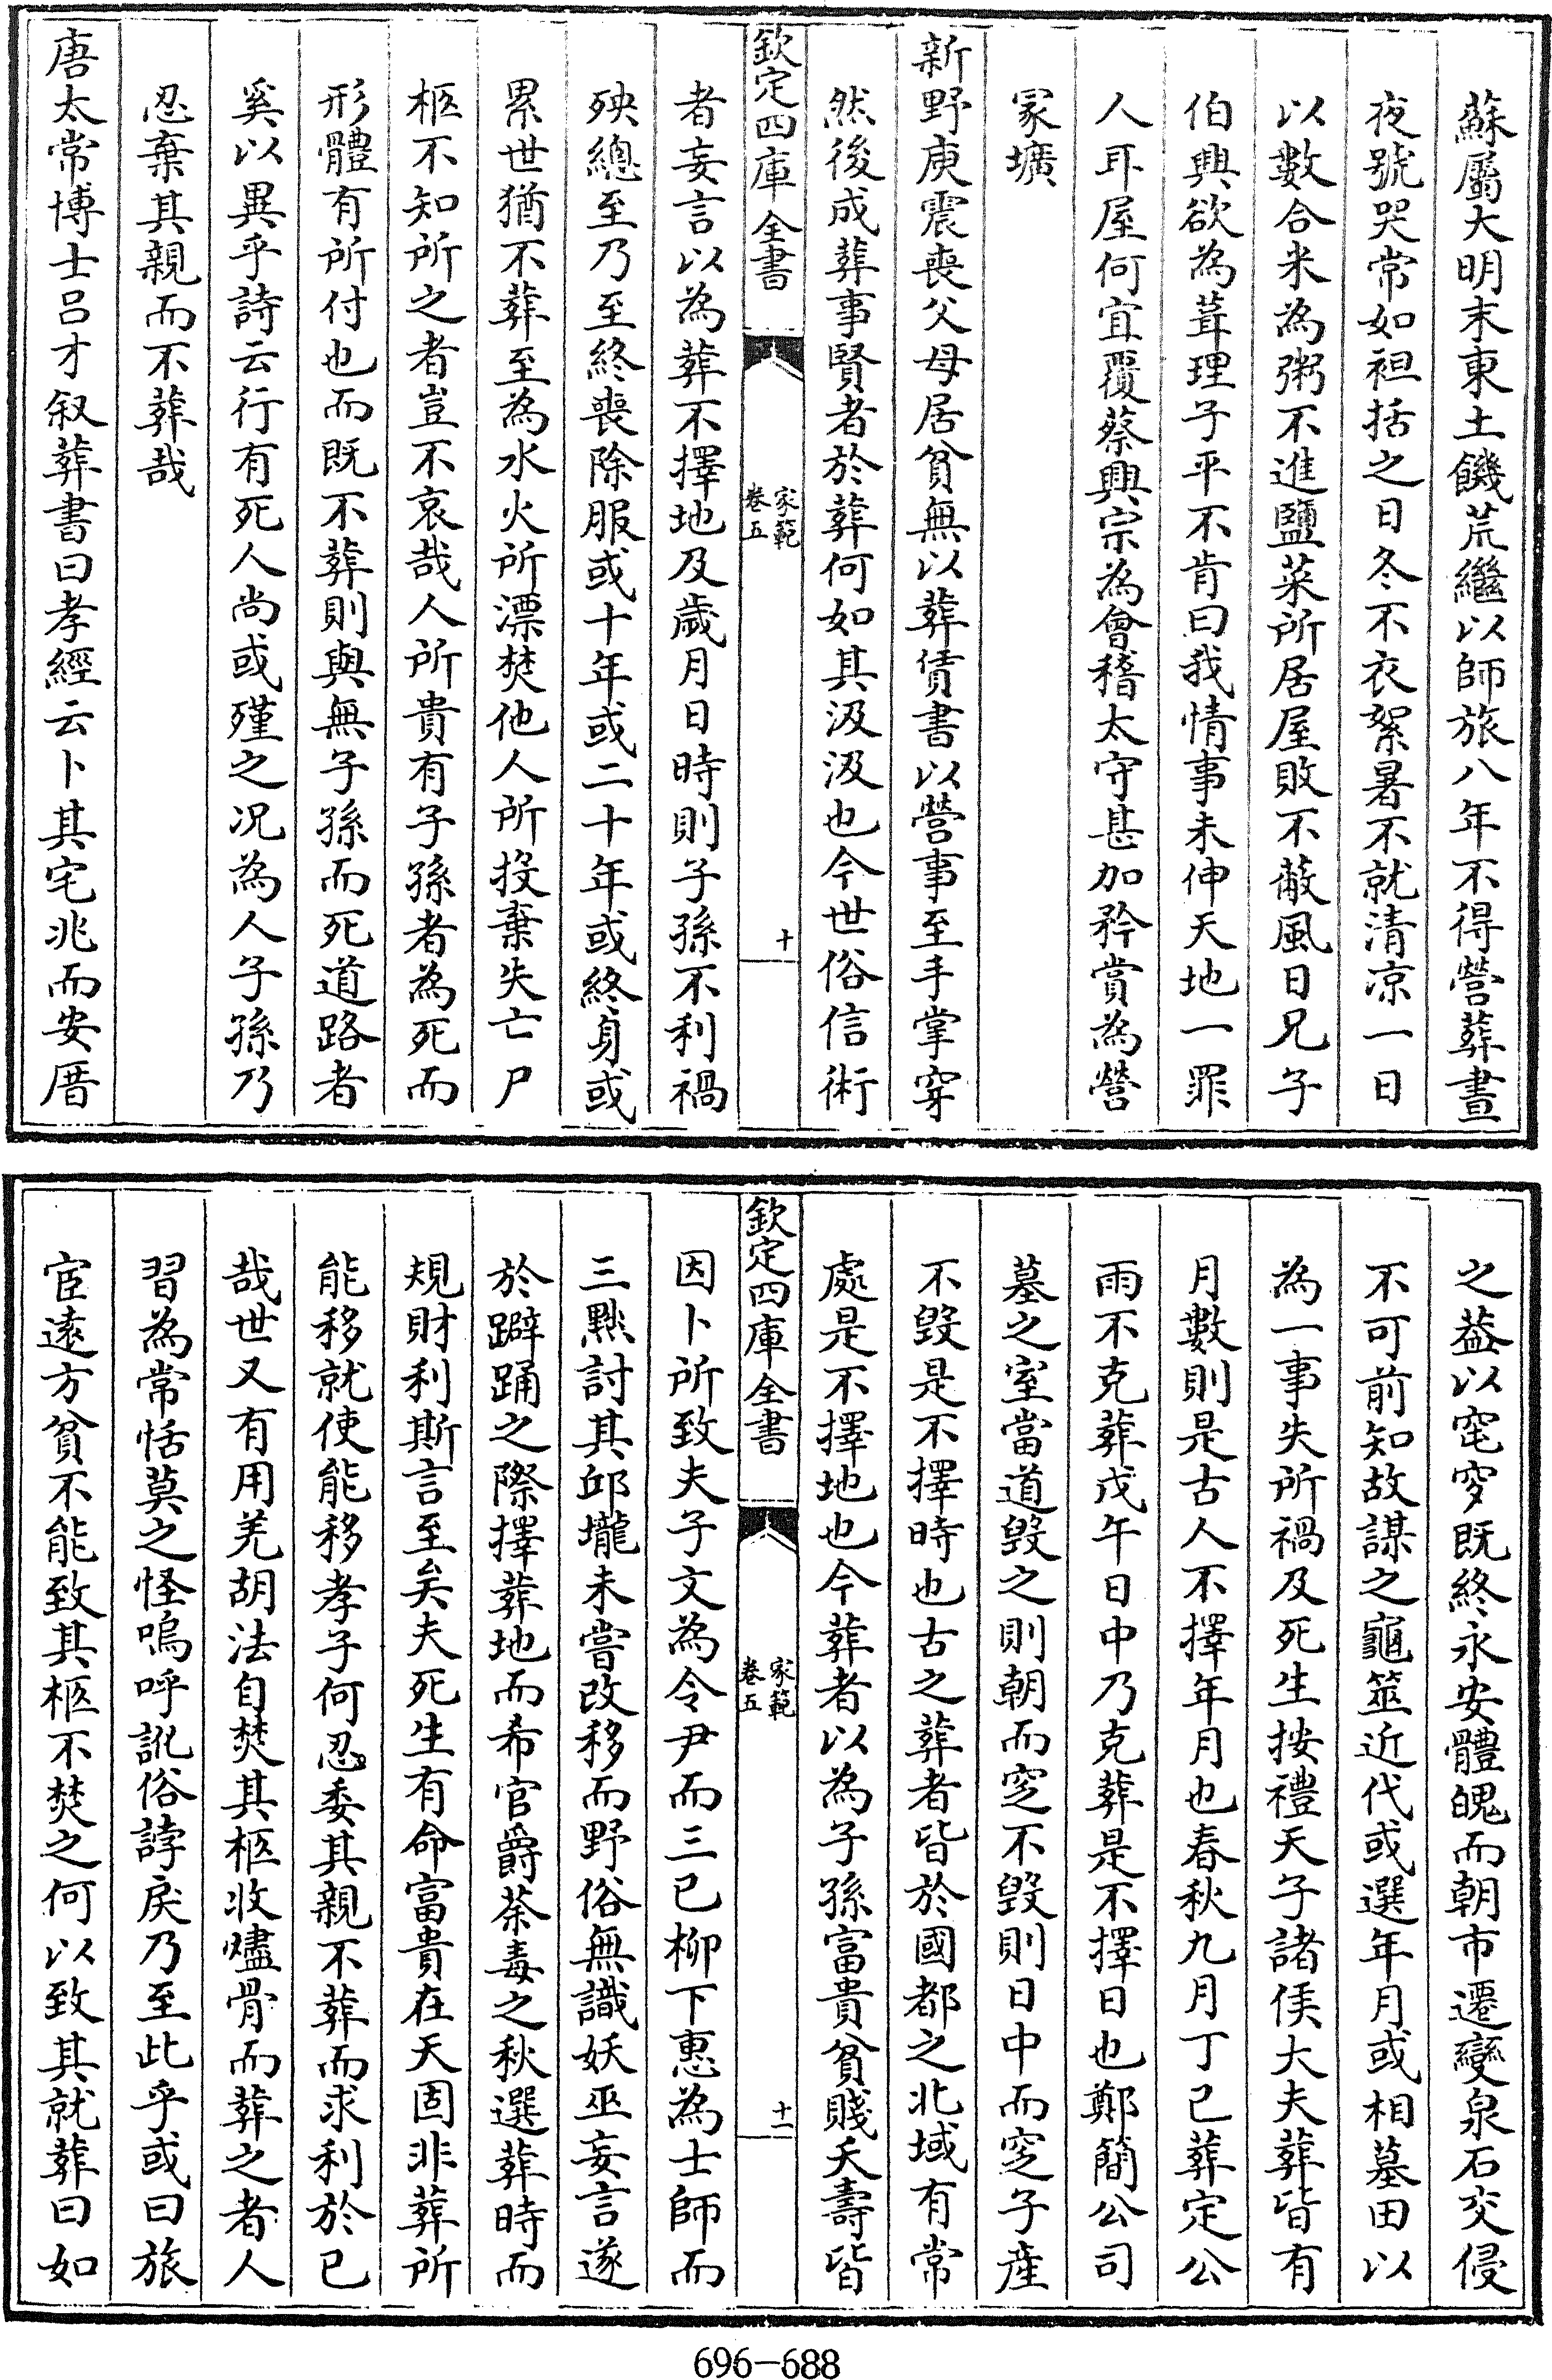 蘇屬大明末東土饑荒繼以師旅八年不得營葬晝
夜號哭常如袒括之日冬不衣絮暑不就清凉一日
以數合米為粥不進鹽菜所居屋敗不蔽風日兄子
伯興欲為葺理子平不肯曰我情事未伸天地一罪
人耳屋何宜覆蔡興宗為會稽太守甚加矜賞為營
冢壙
新野庾震喪父母居貧無以葬賃書以營事至手掌穿
然後成葬事賢者於葬何如其汲汲也今世俗信術
欽定四庫全書
家範
卷五
十
者妄言以為葬不擇地及歲月日時則子孫不利禍
殃總至乃至終喪除服或十年或二十年或終身或
累世猶不葬至為水火所漂焚他人所投棄失亡尸
柩不知所之者豈不哀哉人所貴有子孫者為死而
形體有所付也而既不葬則與無子孫而死道路者
奚以異乎詩云行有死人尚或殣之况為人子孫乃
忍棄其親而不葬哉
唐太常博士呂才叙葬書曰孝經云卜其宅兆而安厝
之葢以窀穸既終永安體魄而朝市遷變泉石交侵
不可前知故謀之龜筮近代或選年月或相墓田以
為一事失所禍及死生按禮天子諸侯大夫葬皆有
月數則是古人不擇年月也春秋九月丁巳葬定公
雨不克葬戊午日中乃克葬是不擇日也鄭簡公司
墓之室當道毀之則朝而窆不毀則日中而窆子産
不毀是不擇時也古之葬者皆於國都之北域有常
處是不擇地也今葬者以為子孫富貴貧賤夭壽皆
欽定四庫全書
家範
卷五
十一
因卜所致夫子文為令尹而三已柳下惠為士師而
三黜討其邱壠未嘗改移而野俗無識妖巫妄言遂
於擗踊之際擇葬地而希官爵荼毒之秋選葬時而
規財利斯言至矣夫死生有命富貴在天固非葬所
能移就使能移孝子何忍委其親不葬而求利於已
哉世又有用羌胡法自焚其柩收燼骨而葬之者人
習為常恬莫之怪嗚呼訛俗誖戾乃至此乎或曰旅
宦遠方貧不能致其柩不焚之何以致其就葬曰如
696-688